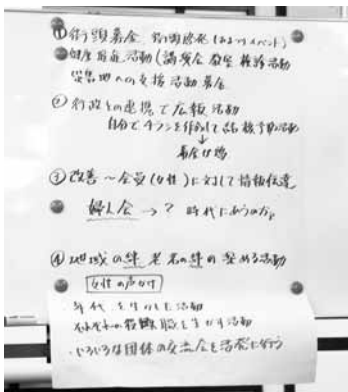 ①街頭募金 街頭啓発(イベント)
健康 活動(講演会 教室 検診活動
災害地への支援活動 募金
②行政との連携で広報活動
自分でチラシを作成して 結核予防活動
↓
募金
③改善〜会員(女性)に対して情報伝達
婦人会→? 時代にあうのか。
④地域の絆 老若の絆の 活動
女性の声かけ
・年代を生かした活動
職を生かす活動
・いろいろな団体の交流会を活発に行う